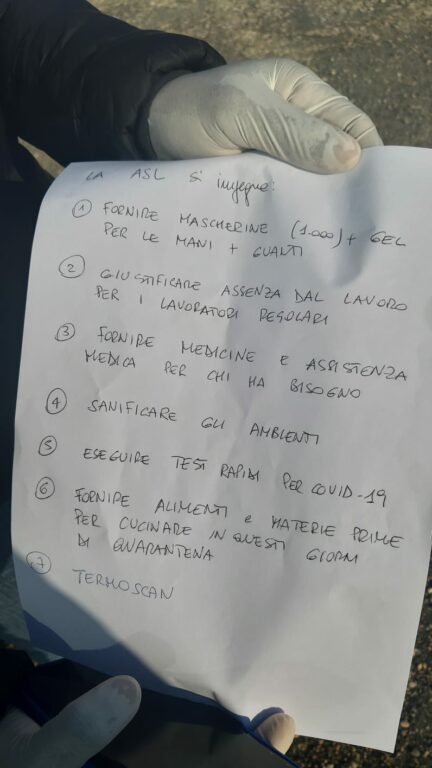 LA ASL SI impegna:
① FORNIRE MASCHERINE (1.000) + GEL
PER LE MANI + GUANTI
② GIUSTIFICARE ASSENZA DAL LAVORO
PER I LAVORATORI REGOLARI
③ FORNIRE MEDICINE E ASSISTENZA
MEDICA PER CHI HA BISOGNO
④ SANIFICARE GLI AMBIENTI
⑤ ESEGUIRE TEST RAPIDI PER COVID-19
⑥ FORNIRE ALIMENTI e MATERIE PRIME
PER CUCINARE IN QUESTI GIORNI
DI QUARANTENA
⑦ TERMOSCAN